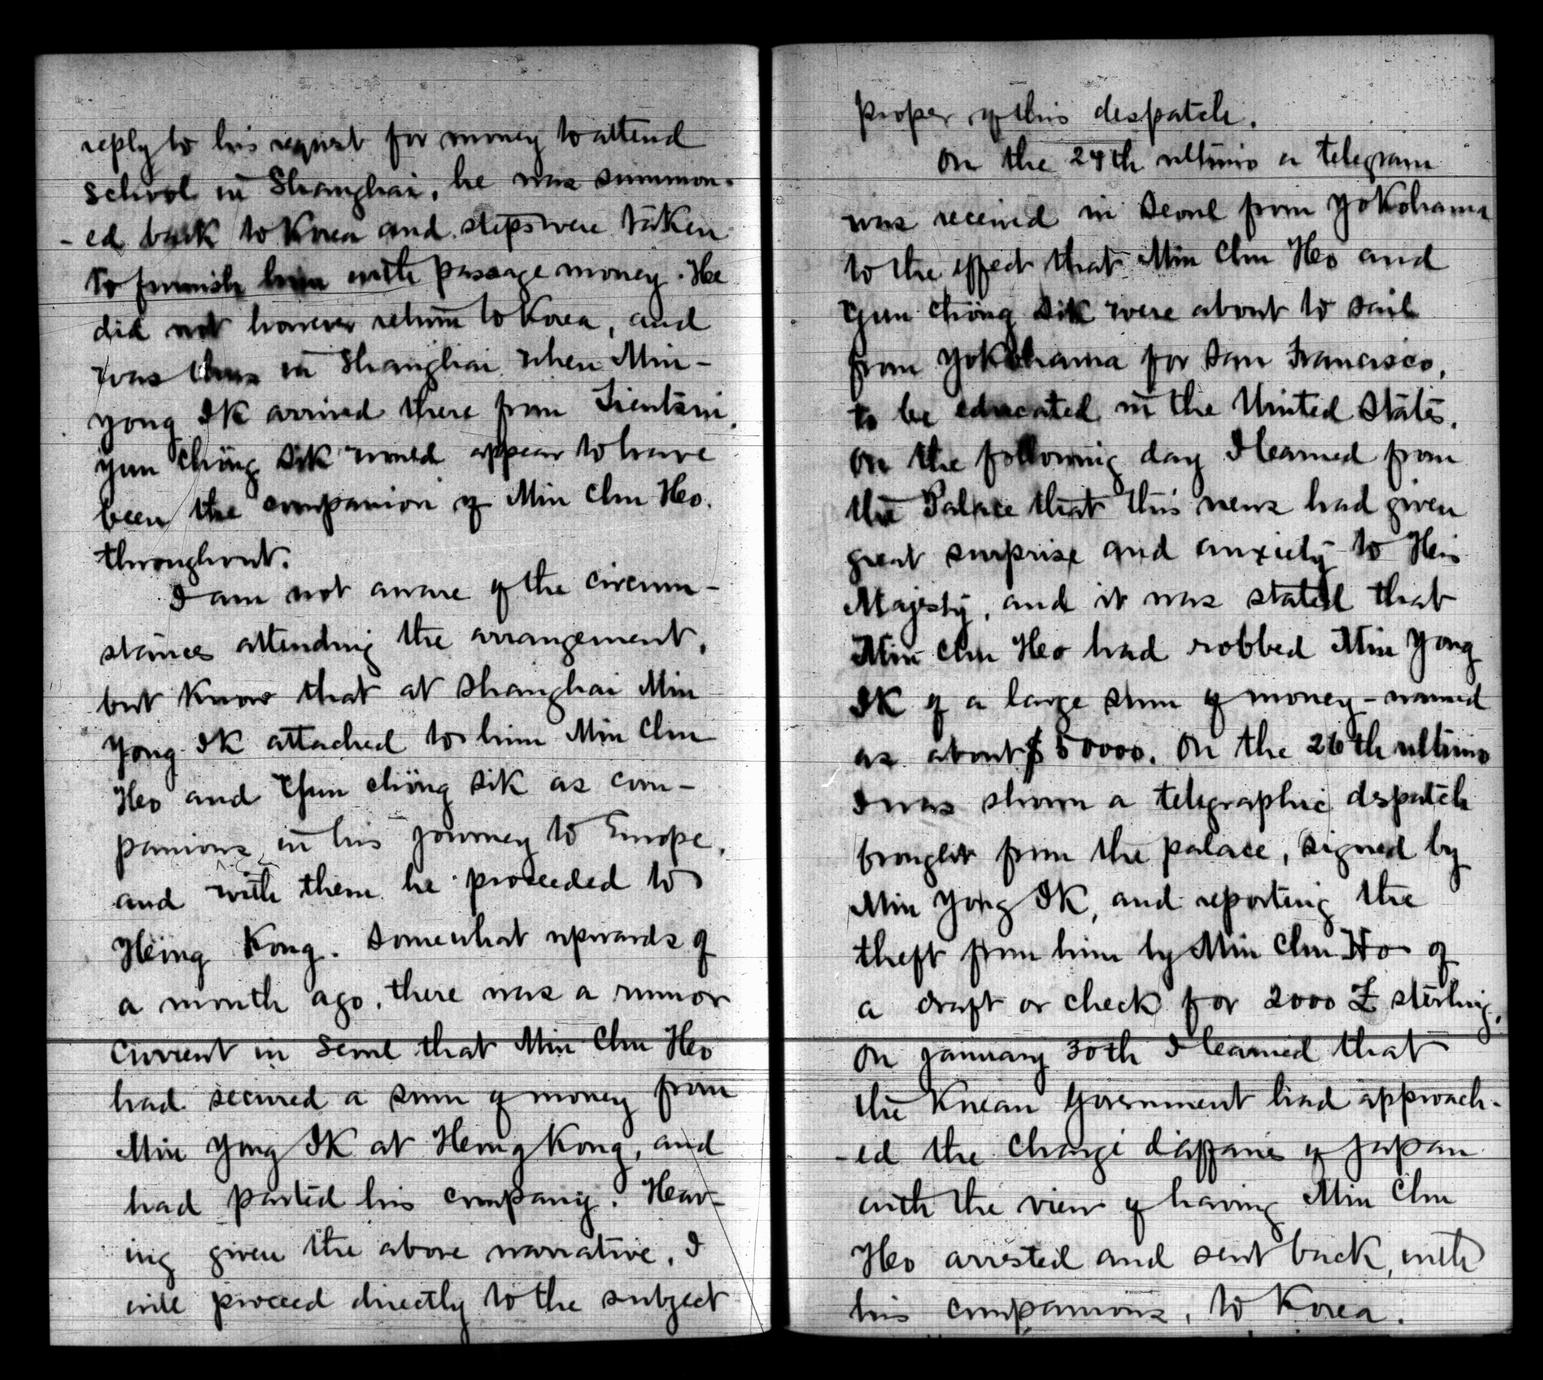 reply to his request for money to attend
school in Shanghai, he was summon-
-ed back to Korea and steps were taken
to furnish him with passage money. He
did not however return to Korea, and
was thus in Shanghai when Min-
Yong Ik arrived there from Tientsin.
Yun Chöng Sik would appear to have
been the companion of Min Chu Ho.
throughout.
I am not aware of the circum-
stances attending the arrangement,
but know that at Shanghai Min
Yong Ik attached to him Min Chu
Ho and Yun Chöng Sik as com-
panions in his journey to Europe,
and with them he proceeded to
Hong Kong. Somewhat upwards of
a month ago, there was a rumor
current in Seoul that Min Chu Ho
had secured a sum of money from
Min Yong Ik at Hong Kong, and
had parted his company. Hav-
ing given the above narrative, I
will proceed directly to the subject
proper of this despatch.
On the 24th ultimo a telegram
was received in Seoul from Yokohama
to the effect that Min Chu Ho and
Yun Chöng Sik were about to sail
from Yokohama for San Francisco,
to be educated in the United States.
On the following day I learned from
the Palace that this news had given
great surprise and anxiety to His
Majesty, and it was stated that
Min Chu Ho had robbed Min Yong
Ik of a large sum of money - named
as about $50000. On the 26th ultimo
I was shown a telegraphic dspatch
brought from the palace, signed by
Min Yong Ik, and reporting the
theft from him by Min Chu Ho of
a draft or check for 2000 £ sterling.
On January 30th I learned that
the Korean Government had approach-
-ed the Chargé d'affaires of Japan
with the view of having Min Chu
Ho arrested and sent back, with
his companions, to Korea.